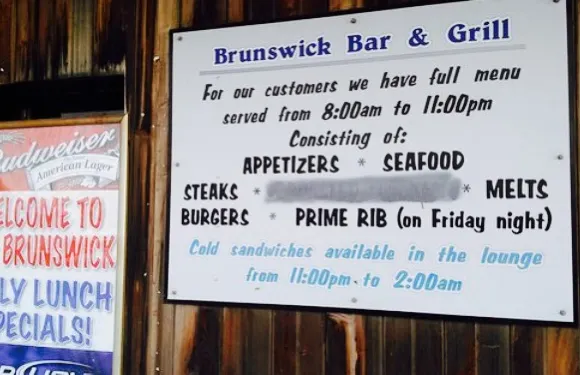 Brunswick Bar & Grill
For our customers we have full menu
served from 8:00am to 11:00pm
Consisting of:
APPETIZERS * SEAFOOD
STEAKS * * MELTS
BURGERS * PRIME RIB (on Friday night)
Cold sandwiches available in the lounge
from 11:00pm to 2:00am
udweiser
American Lager
ELCOME TO
BRUNSWICK
LY LUNCH
PECIALS!